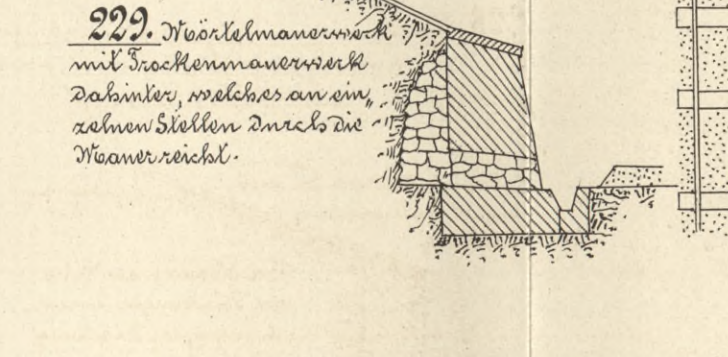 229. Mörtelmauerwerk
mit Trockenmauerwerk
dahinter, welches an ein„
zelnen Stellen durch die
Mauer reicht.